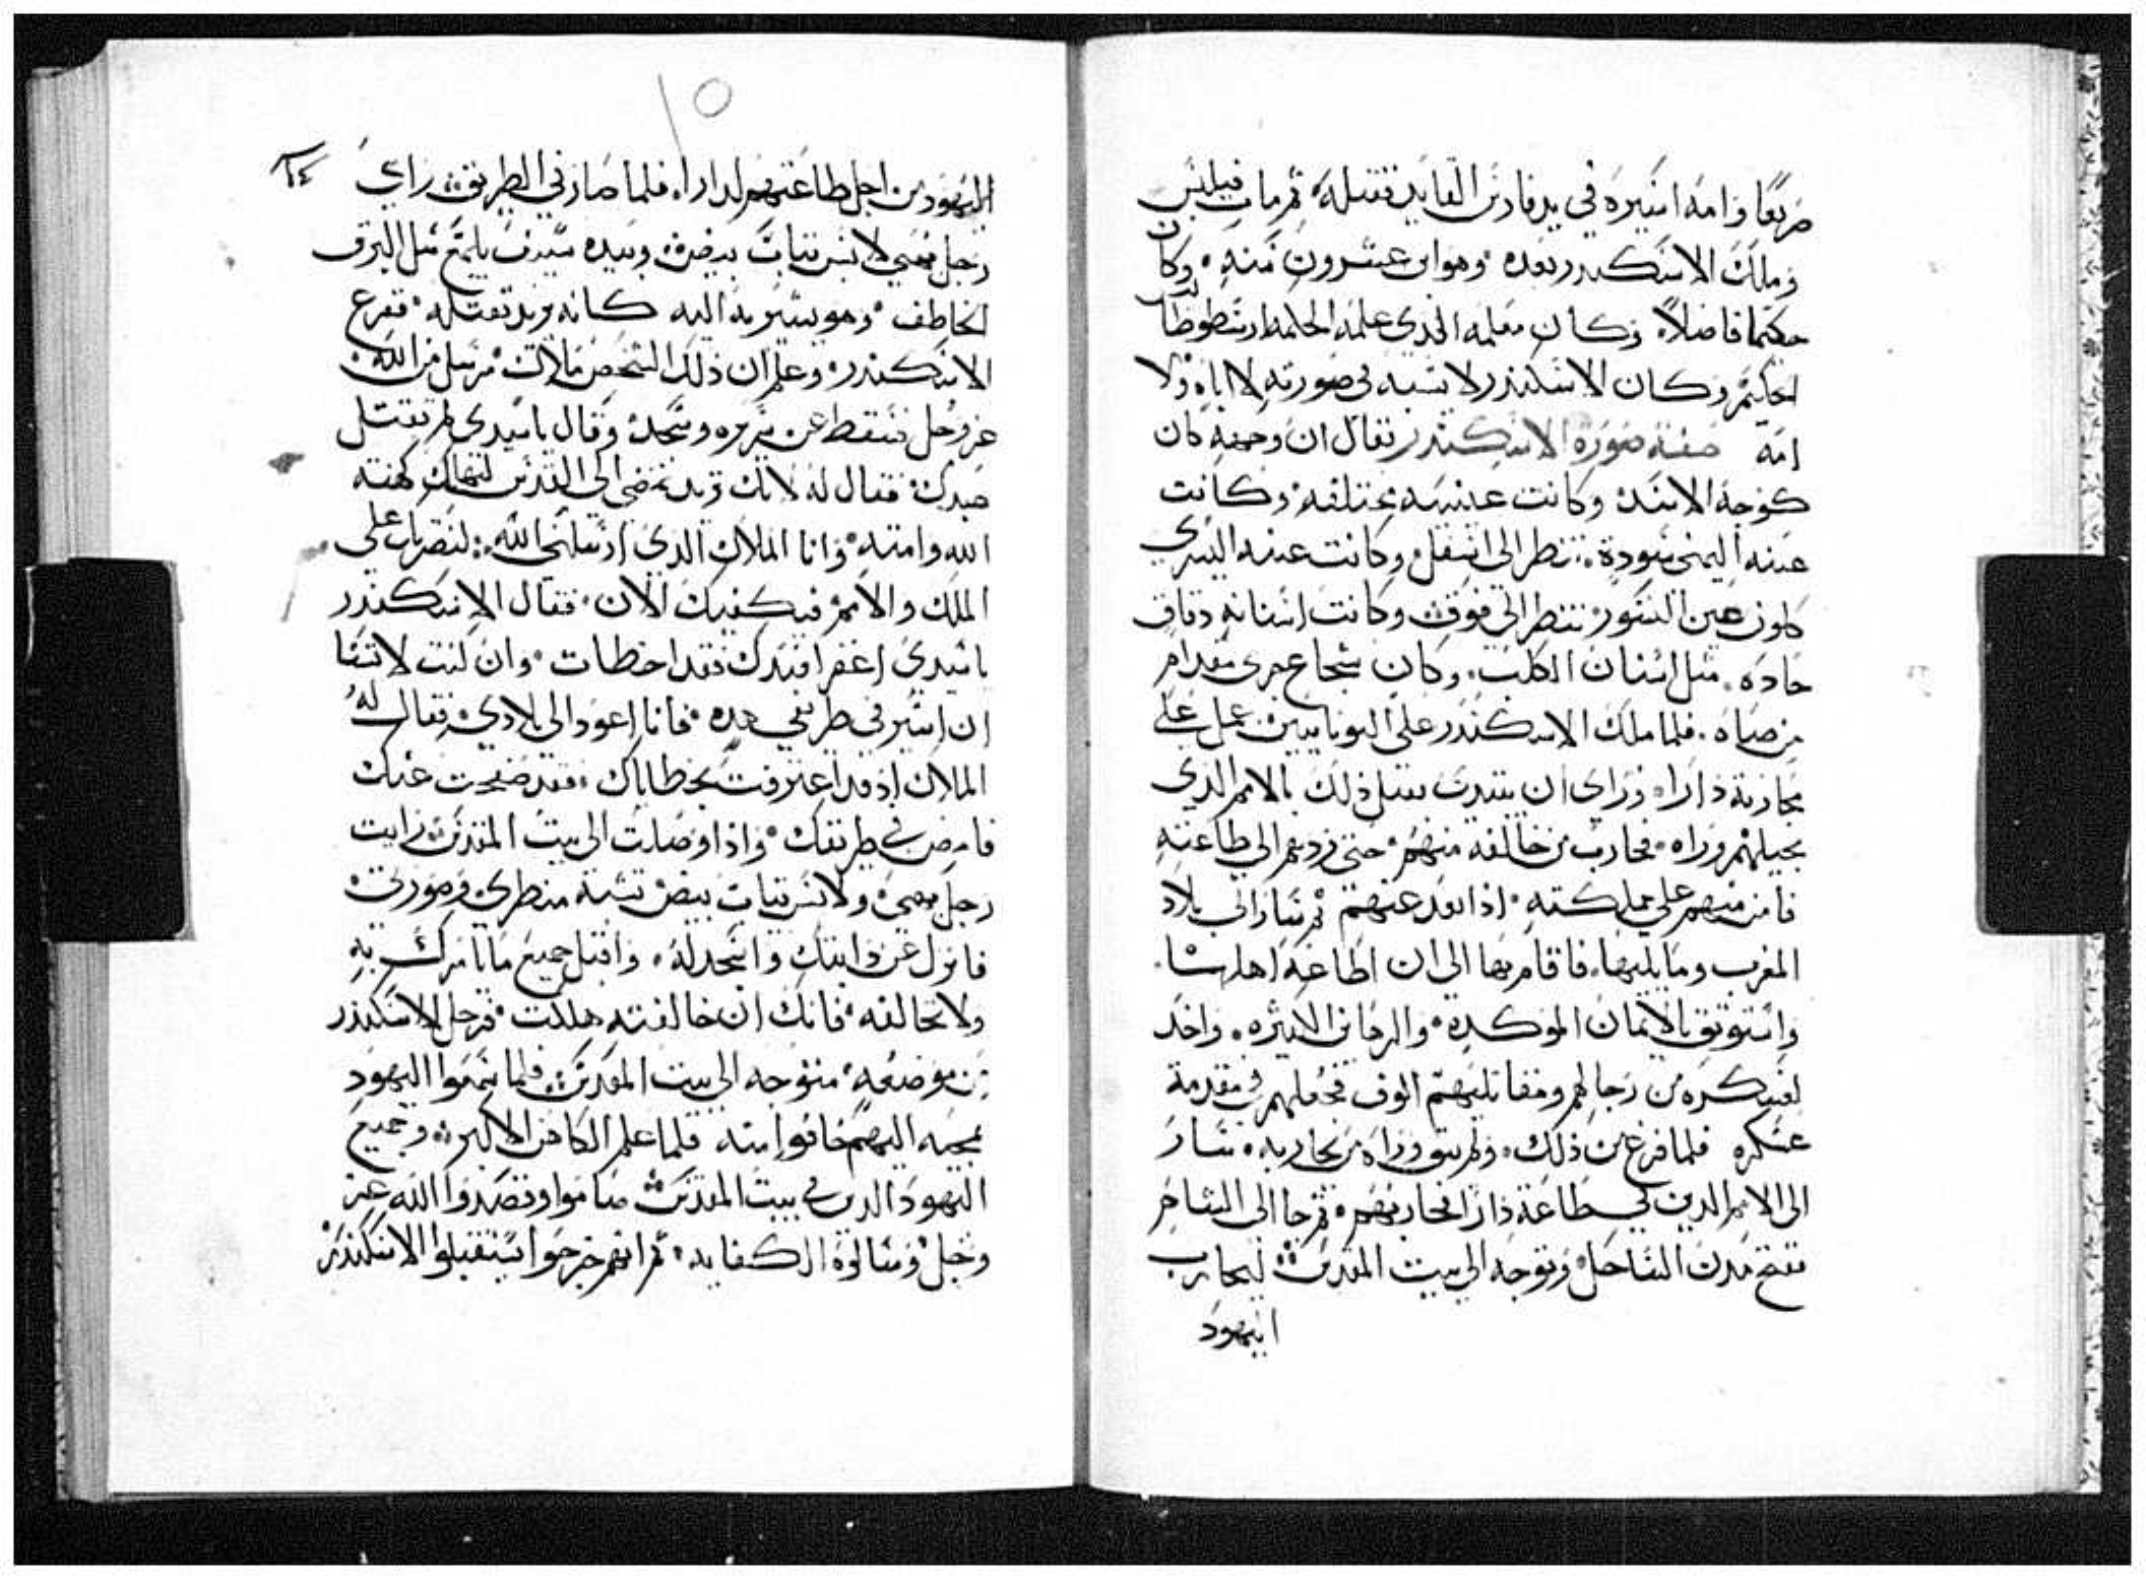 صريعا وامه اسيره في يد فاوس القايد فقتله، ثم مات فيلبس
وملك الاسكندر بعده، وهو ابن عشرون سنه، وكان
حكيما فاضلا، وكان معلمه الذي علمه الحكمة ارسطوطاليس
الحكيم، وكان الاسكندر لا تشبه في صورته لا اباه ولا
امه صفة صورة الاسكندر يقال ان وجهه كان
كوجه الاسد، وكانت عينيه مختلفه، وكانت
عينه اليمنى سودة، تنظر الى اسفل وكانت عينه اليسرى
كلون عين السنور، تنظر الى فوق، وكانت اسنانه دقاق
حادة، مثل اسنان الكلب، وكان شجاع جري مقدام
من صباه، فلما ملك الاسكندر على اليونانيين، عمل على
محاربة دارا، وراى ان يبتدي قبل ذلك بالامم الذي
يخيلهم وراه، فحارب من خالفه منهم، حتى ردهم الى طاعته
فامن منهم على مملكته، اذا بعد عنهم ثم سار الى بلاد
المغرب وما يليها، فاقام بها الى ان اطاعه اهلها
واستوثق بالايمان الموكدة، والرهاين الكثيره، واخد
لعسكره من رجالهم ومقاتليهم الوف فجعلهم في مقدمة
عسكره فلما فرغ من ذلك، ولم يبق وراه من يحاربه، سار
الى الامم الذين في طاعة دارا فحاربهم، ثم جا الى الشام
ففتح مدن الساحل، وتوجه الى بيت المقدس ليحارب
اليهود
١٥
١٤
اليهود من اجل طاعتهم لدارا، فلما صار في الطريق، راي
رجل بهي لابس تياب بيض، وبيده سيف يلمع مثل البرق
الخاطف، وهو يشير به اليه كانه يريد يقتله، ففزع
الاسكندر، وعلم ان ذلك الشخص ملاك مرسل من الله
عز وجل فسقط عن سريره وسجد، وقال يا سيدي لم تقتل
عبدك، فقال له لانك تريد تمضي الى القدس لتهلك كهنة
الله وامته، وانا الملاك الذي ارسلني الله، لنصرتك على
الملك والامم، فيكفيك الان، فقال الاسكندر
يا سيدي اغفر لعبدك فقد اخطات، وان كنت لا تشا
ان اسير في طريقي هده، فانا اعود الى بلادي، فقال له
الملاك اذ قد اعترفت بخطاياك، فقد صفحت عنك
فامض في طريقك، واذا وصلت الى بيت المقدس، رايت
رجل بهي، ولابس تياب بيض، تشبه منظري وصورتي
فانزل عن دابتك واسجد له، واقبل جميع ما يامرك به
ولا تخالفه، فانك ان خالفته هلكت، فرحل الاسكندر
من موضعه، متوجه الى بيت المقدس، فلما سمعوا اليهود
بمجيه اليهم خافوا منه فلما علم الكاهن الاكبر، وجميع
اليهود الدين في بيت المقدس صاموا وقصدوا الله عز
وجل، وسالوه الكفايه، ثم انهم خرجوا ليستقبلوا الاسكندر